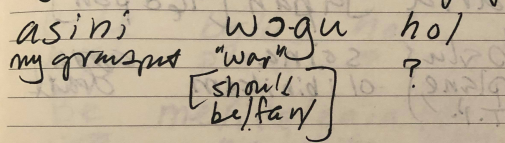 asini wɔgu hol
my grandpat "war" ?
[should
be/fan/]